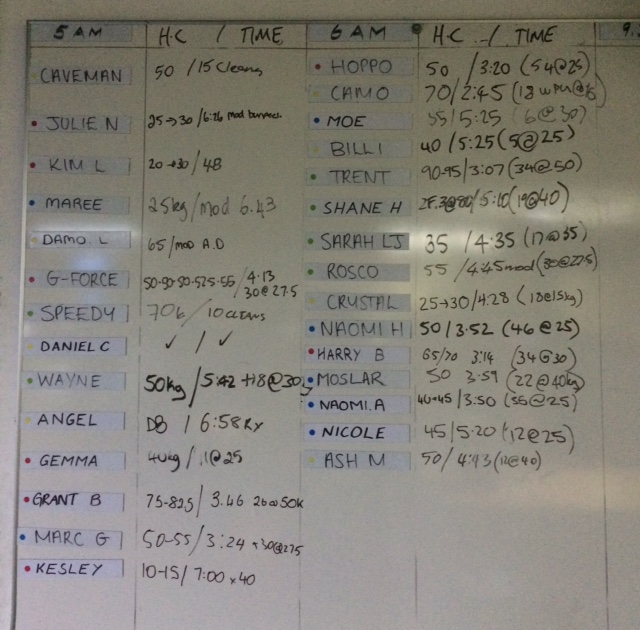 5 AM H.C / TIME
CAVEMAN 50 / 15 Cleans
JULIE N 25→30 / 6:26 mod burpees
KIM L 20→30 / 48
MAREE 25kg / mod 6.43
DAMO L 65 / mod A.D
G-FORCE 50-50-50-52.5-55 / 4.13
30@27.5
SPEEDY / 10 cleans
DANIEL C ✓ / ✓
WAYNE 50kg / 5:42 +18@30
ANGEL DB / 6:58 Rx
GEMMA 40kg / @25
GRANT B 75-82.5 / 3.46 26@50K
MARC G 50-55 / 3:24 +30@27.5
KESLEY 10-15 / 7:00 x40
6 AM H.C / TIME
HOPPO 50 / 3:20 (54@25)
CAMO 70 / 2:45 (18
MOE 55 / 5:25 (6@30)
BILLI 40 / 5:25 (5@25)
TRENT 90-95 / 3:07 (34@50)
SHANE H / 5:10 (19@40)
SARAH LJ 35 / 4:35 (17@35)
ROSCO 55 / 4:45 mod (30@27.5)
CRYSTAL 25→30 / 4:28 (18@15kg)
NAOMI H 50 / 3.52 (46@25)
HARRY B 65/70 3:14 (34@30)
MOSLAR 50 3.59 (22@40kg)
NAOMI.A 40-45 / 3:50 (35@25)
NICOLE 45 / 5.20 (12@25)
ASH M 50 / (12@40)
9.